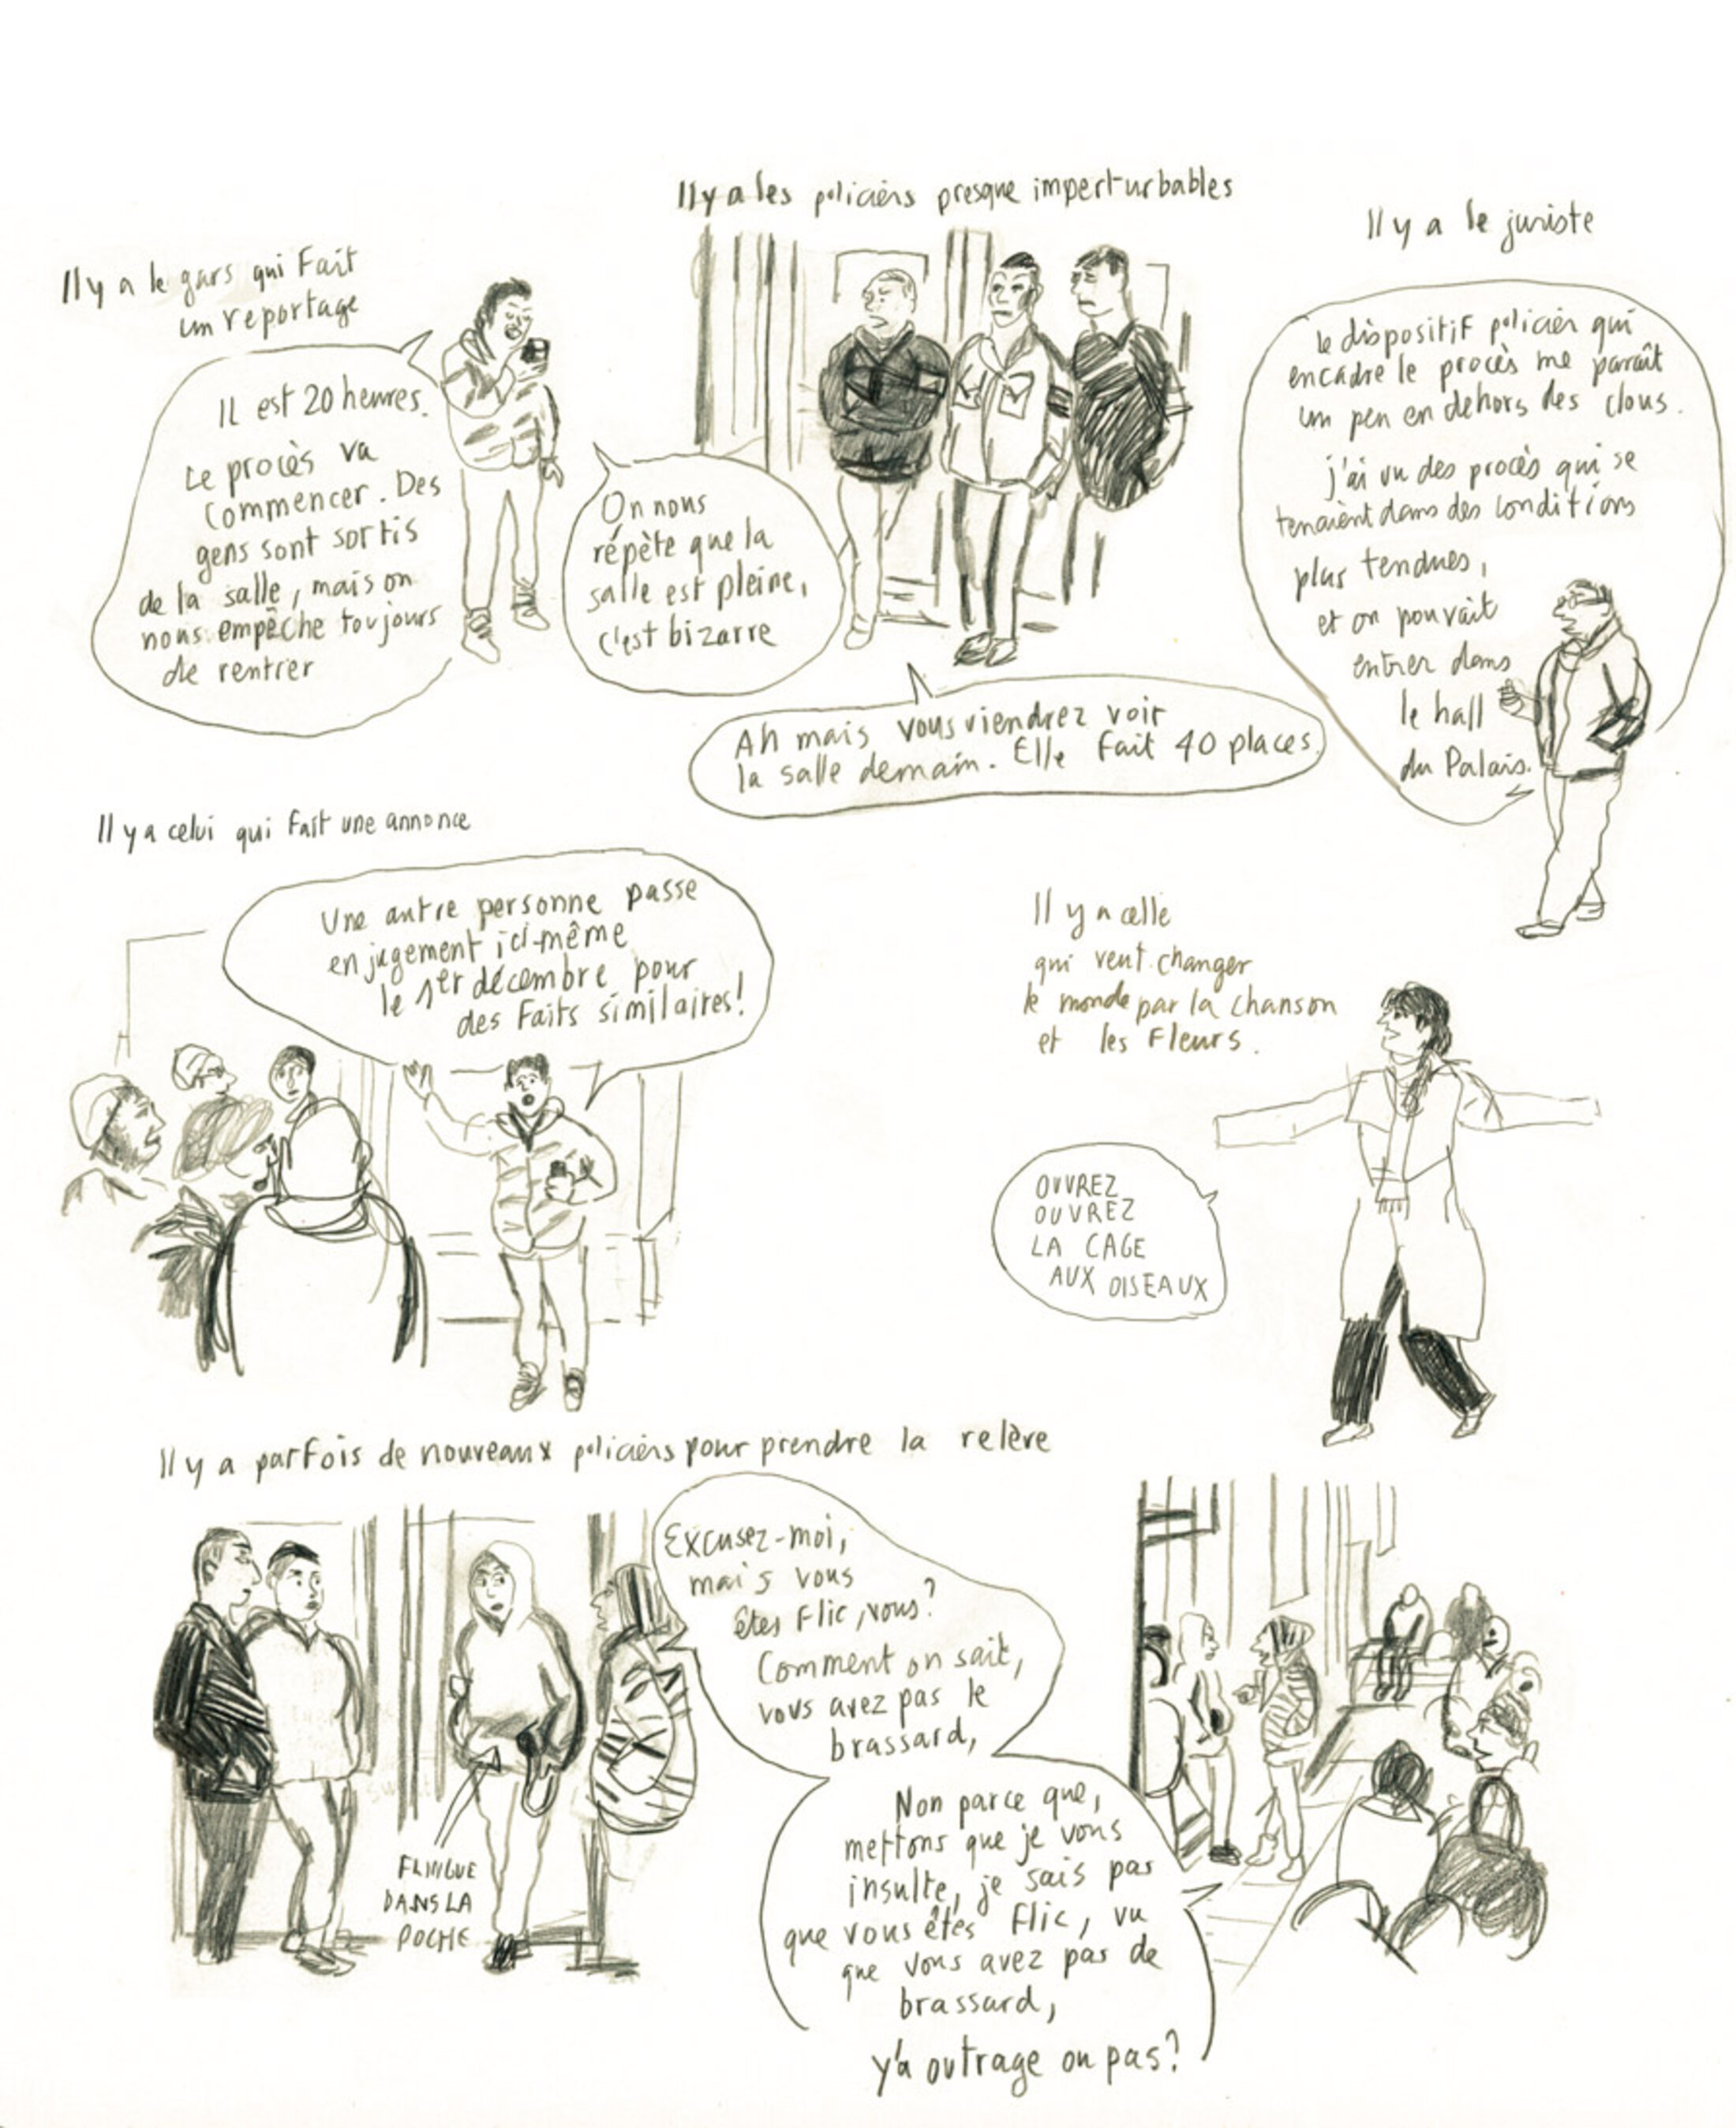 Il y a le gars qui fait
un reportage
Il est 20 heures.
Le procès va
commencer. Des
gens sont sortis
de la salle, mais on
nous empêche toujours
de rentrer
Il y a les policiers presque imperturbables
On nous
répète que la
salle est pleine,
c'est bizarre
Ah mais vous viendrez voir
la salle demain. Elle fait 40 places.
Il y a le juriste
le dispositif policier qui
encadre le procès me paraît
un peu en dehors des clous.
j'ai vu des procès qui se
tenaient dans des conditions
plus tendues,
et on pouvait
entrer dans
le hall
du Palais.
Il y a celui qui fait une annonce
Une autre personne passe
en jugement ici-même
le 1er décembre pour
des faits similaires!
Il y a celle
qui veut changer
le monde par la chanson
et les fleurs.
OUVREZ
OUVREZ
LA CAGE
AUX OISEAUX
Il y a parfois de nouveaux policiers pour prendre la relève
Excusez-moi,
mais vous
êtes flic, vous?
Comment on sait,
vous avez pas le
brassard,
FLINGUE
DANS LA
POCHE
Non parce que,
mettons que je vous
insulte, je sais pas
que vous êtes flic, vu
que vous avez pas de
brassard,
y'a outrage ou pas?